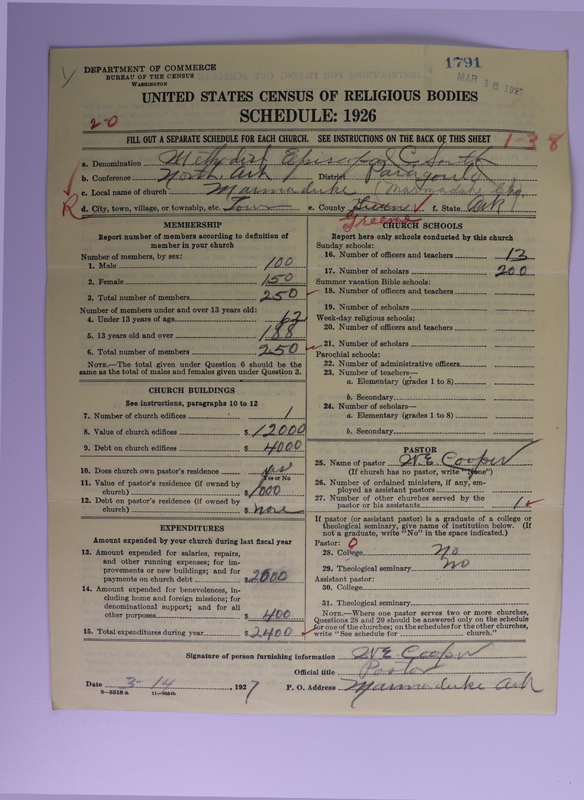 1791
MAR 18 1927
DEPARTMENT OF COMMERCE
BUREAU OF THE CENSUS
WASHINGTON
UNITED STATES CENSUS OF RELIGIOUS BODIES
SCHEDULE: 1926
2-0
FILL OUT A SEPARATE SCHEDULE FOR EACH CHURCH. SEE INSTRUCTIONS ON THE BACK OF THIS SHEET
1-38
a. Denomination Methodist Episcopal C. South
b. Conference North Ark District Paragould
c. Local name of church Marmaduke (Marmaduke Chg.
R d. City, town, village, or township, etc. Town e. County Green f. State Ark
Greene
MEMBERSHIP
Report number of members according to definition of member in your church
Number of members, by sex:
1. Male 100
2. Female 150
3. Total number of members 250
Number of members under and over 13 years old:
4. Under 13 years of age 62
5. 13 years old and over 188
6. Total number of members 250
NOTE.—The total given under Question 6 should be the same as the total of males and females given under Question 3.
CHURCH BUILDINGS
See instructions, paragraphs 10 to 12
7. Number of church edifices 1
8. Value of church edifices $ 12000
9. Debt on church edifices $ 4000
10. Does church own pastor's residence yes
Yes or No
11. Value of pastor's residence (if owned by church) $ 1000
12. Debt on pastor's residence (if owned by church) $ none
EXPENDITURES
Amount expended by your church during last fiscal year
13. Amount expended for salaries, repairs, and other running expenses; for improvements or new buildings; and for payments on church debt $ 2000
14. Amount expended for benevolences, including home and foreign missions; for denominational support; and for all other purposes $ 400
15. Total expenditures during year $ 2400
CHURCH SCHOOLS
Report here only schools conducted by this church
Sunday schools:
16. Number of officers and teachers 13
17. Number of scholars 200
Summer vacation Bible schools:
18. Number of officers and teachers
19. Number of scholars
Week-day religious schools:
20. Number of officers and teachers
21. Number of scholars
Parochial schools:
22. Number of administrative officers
23. Number of teachers—
a. Elementary (grades 1 to 8)
b. Secondary
24. Number of scholars—
a. Elementary (grades 1 to 8)
b. Secondary
PASTOR
25. Name of pastor W.E. Cooper
(If church has no pastor, write "None")
26. Number of ordained ministers, if any, employed as assistant pastors
27. Number of other churches served by the pastor or his assistants 1
If pastor (or assistant pastor) is a graduate of a college or theological seminary, give name of institution below. (If not a graduate, write "No" in the space indicated.)
Pastor: 0
28. College No
29. Theological seminary No
Assistant pastor:
30. College
31. Theological seminary
NOTE.—Where one pastor serves two or more churches, Questions 28 and 29 should be answered only on the schedule for one of the churches; on the schedules for the other churches, write "See schedule for church."
Signature of person furnishing information W E Cooper
Official title Pastor
Date 3-14, 1927 P. O. Address Marmaduke Ark